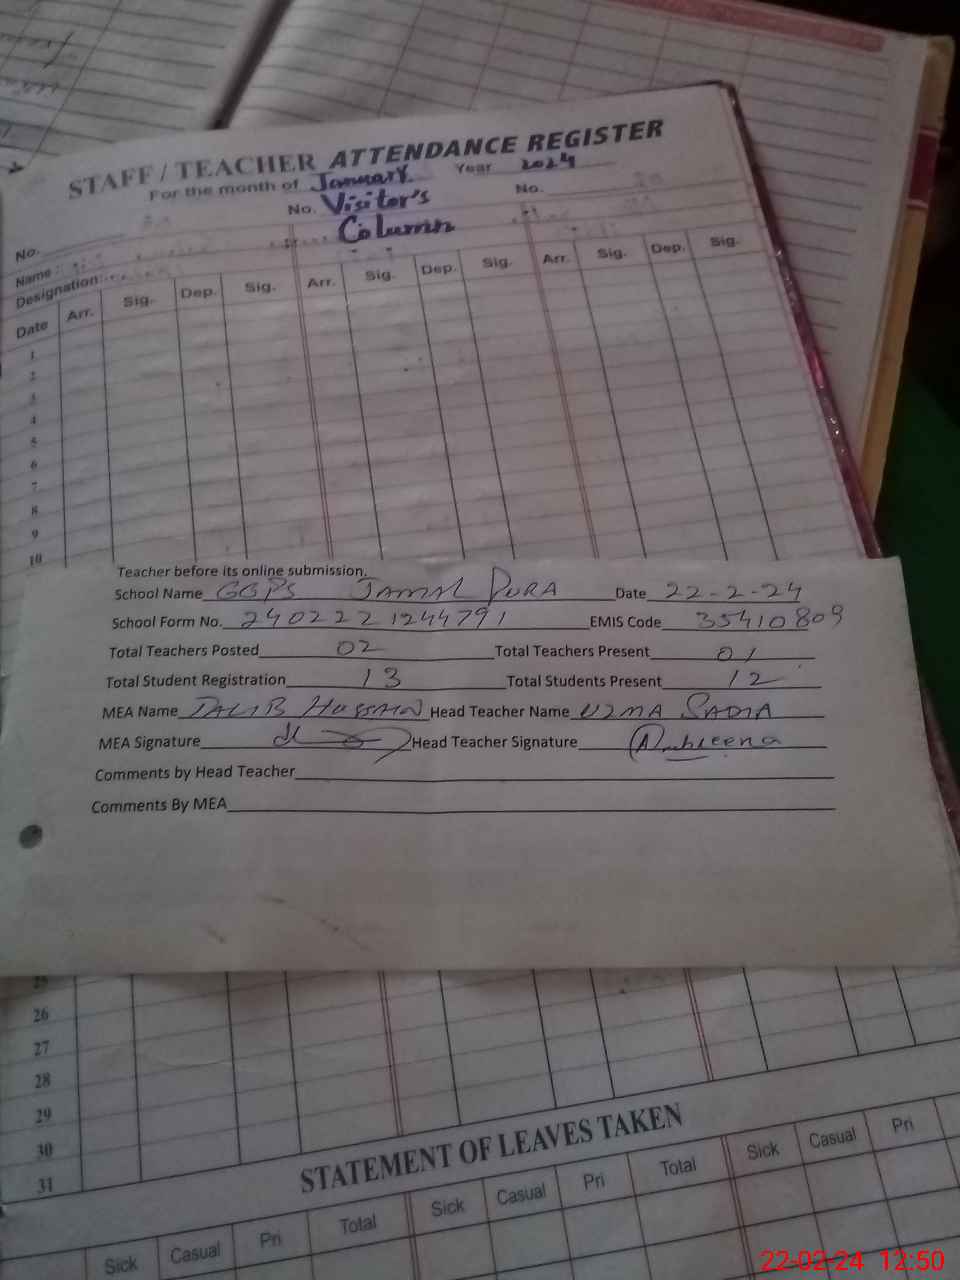 STAFF / TEACHER ATTENDANCE REGISTER
For the month of January Year 2024
No. No. Visitor's No.
Column
Name :
Designation:
Date Arr. Sig. Dep. Sig. Arr. Sig. Dep. Sig. Arr. Sig. Dep. Sig.
1
2
3
4
5
6
7
8
9
10
Teacher before its online submission.
School Name GGPS Jamal Pura Date 22-2-24
School Form No. 2402221244791 EMIS Code 35410809
Total Teachers Posted 02 Total Teachers Present 01
Total Student Registration 13 Total Students Present 12
MEA Name TALIB HUSSAIN Head Teacher Name UZMA SADIA
MEA Signature Head Teacher Signature
Comments by Head Teacher
Comments By MEA
25
26
27
28
29
30
31
STATEMENT OF LEAVES TAKEN
Sick Casual Pri Total Sick Casual Pri Total Sick Casual Pri
22-02-24 12:50